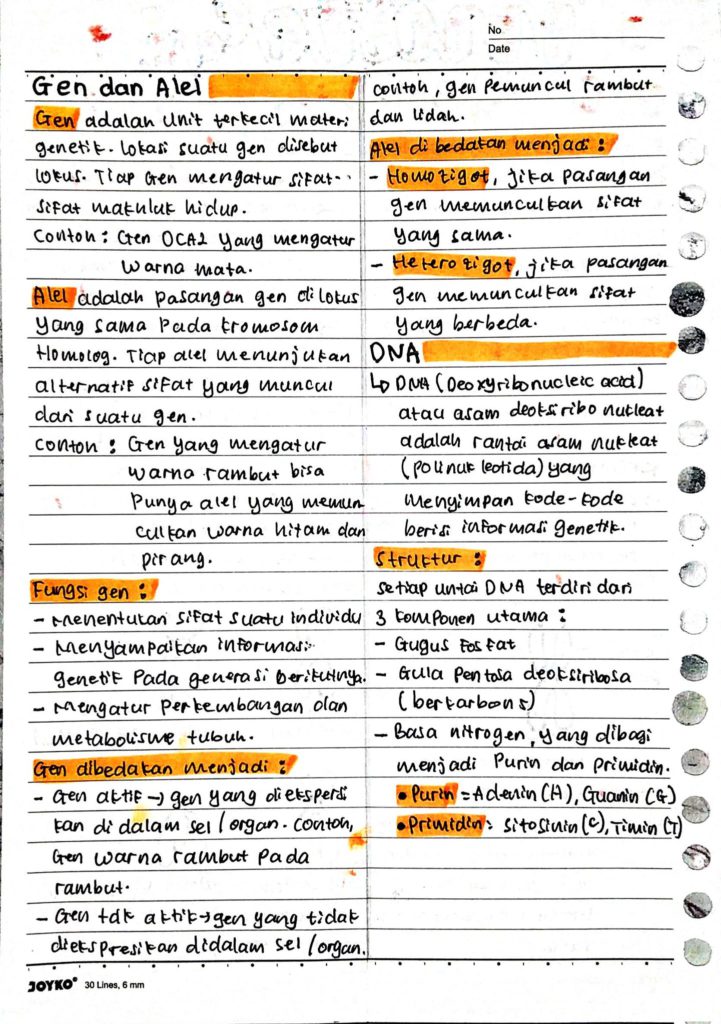 No
Date
Gen dan Alel
Gen adalah unit terkecil materi
genetik. Lokasi suatu gen disebut
lokus. Tiap Gen mengatur sifat-
sifat makhluk hidup.
Contoh : Gen OCA2 yang mengatur
warna mata.
Alel adalah pasangan gen di lokus
yang sama pada kromosom
Homolog. Tiap alel menunjukan
alternatif sifat yang muncul
dari suatu gen.
contoh : Gen yang mengatur
warna rambut bisa
Punya alel yang memun
culkan warna hitam dan
pirang.
Fungsi gen :
- Menentukan sifat suatu individu
- Menyampaikan informasi
genetik pada generasi berikutnya.
- Mengatur perkembangan dan
metabolisme tubuh.
Gen dibedakan menjadi :
- Gen aktif → gen yang diekspresi
kan di dalam sel / organ. Contoh,
Gen warna rambut pada
rambut.
- Gen tdk aktik → gen yang tidak
diekspresikan didalam sel / organ.
contoh, gen pemuncul rambut
dan lidah.
Alel di bedakan menjadi :
- Homozigot, jika pasangan
gen memunculkan sifat
yang sama.
- Heterozigot, jika pasangan
gen memunculkan sifat
yang berbeda.
DNA
↳ DNA (Deoxyribonucleic acid)
atau asam deoksiribo nukleat
adalah rantai asam nukleat
(polinukleotida) yang
menyimpan kode-kode
berisi informasi genetik.
Struktur :
setiap untai DNA terdiri dari
3 komponen utama :
- Gugus Fosfat
- Gula Pentosa deoksiribosa
(berkarbon 5)
- Basa nitrogen, yang dibagi
menjadi Purin dan Primidin.
• Purin = Adenin (A), Guanin (G)
• Primidin = Sitosinin (C), Timin (T)
JOYKO® 30 Lines, 6 mm